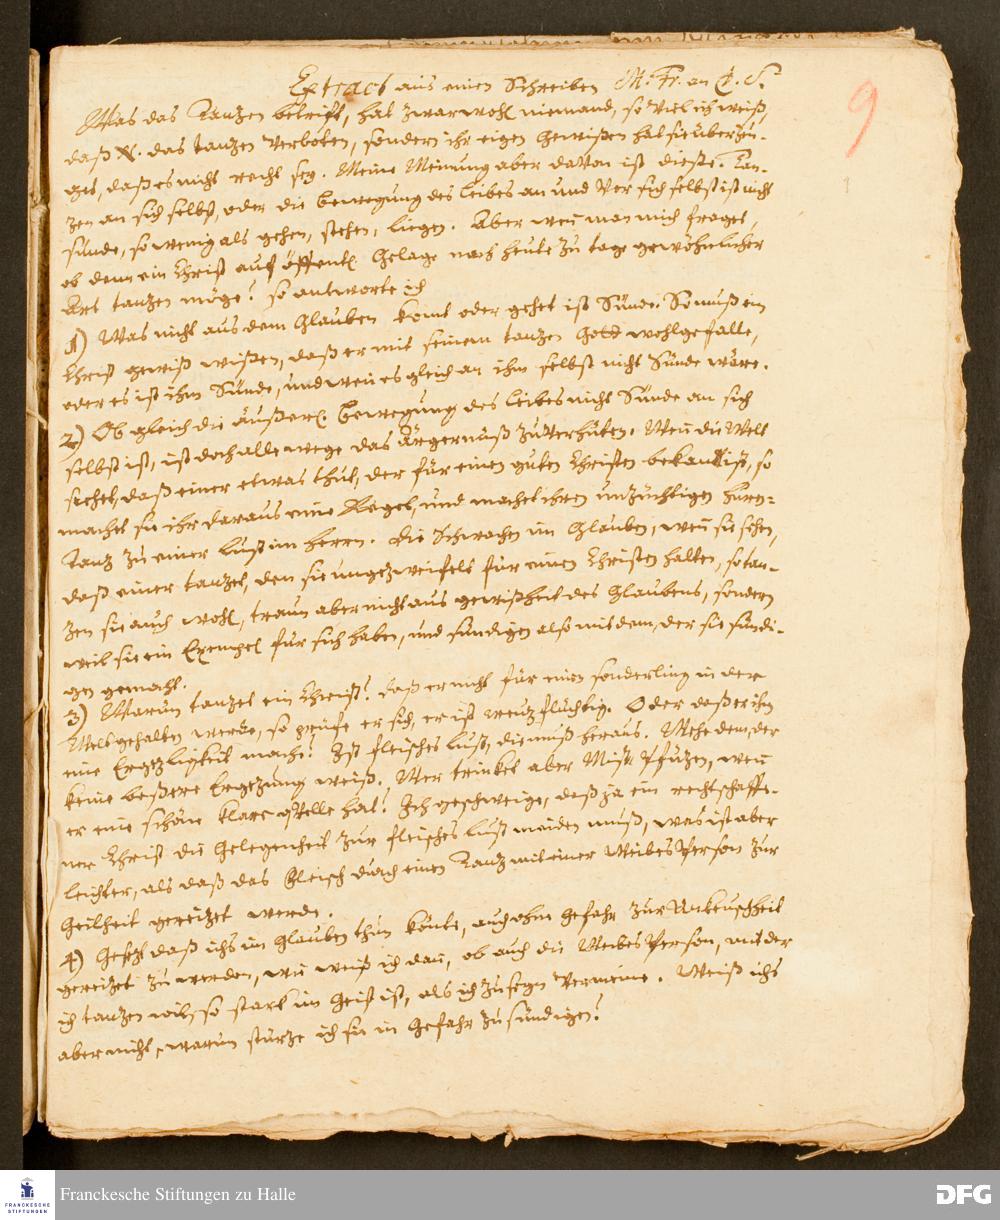 Extract aus einen Schreiben M. Fr. an C. S.
9
Was das Tantzen betrifft, hat zwar wohl niemand, so viel ich weiß,
daß N. das tantzen verboten, sondern ihr eigen Gewißen hat sie überzeu-
get, daß es nicht recht sey. Meine Meinung aber davon ist diese. Tan-
zen an sich selbst, oder die bewegung des leibes an und vor sich selbst ist nicht
sünde, so wenig als gehen, stehen, liegen. Aber wen man mich fraget,
ob denn ein Christ auf öffentl. Gelage nach heute zu tage gewöhnlicher
Art tantzen möge? so antworte ich
1) Was nicht aus dem Glauben komt oder gehet ist Sünde. So muß ein
Christ gewiß wißen, daß er mit seinem tantzen Gott wohlgefalle,
oder es ist ihm Sünde, und wen es gleich an ihm selbst nicht Sünde wäre.
2) Ob gleich die äußerl. bewegung des leibes nicht Sünde an sich
selbst ist, ist doch alle wege das Ärgernüß zu verhüten. Wen die Welt
siehet, daß einer etwas thut, der für einen guten Christen bekant ist, so
machet sie ihr daraus eine Regel, und machet ihren unzüchtigen huren-
Tantz zu einer lust im herrn. die Schwachen im Glauben, wen sie sehen,
daß einer tantzet, den sie ungezweifelt für einen Christen halten, so tan-
zen sie auch wohl, traun aber nicht aus gewißheit des Glaubens, sondern
weil sie ein Exempel für sich haben, und sündigen also mit dem, der sie sündi-
gen gemacht.
3) Warum tantzet ein Christ? daß er nicht für einen sonderling in der
Welt gehalten werde, so prüfe er sich, er ist creutzflüchtig. Oder daß er ihm
eine Ergetzligkeit mache? Ist fleisches lust, die muß heraus. Wehe dem, der
keine beßere Ergetzung weiß. Wer trinket aber Mist Pfützen, wen
er eine schöne klare qvelle hat? Ich geschweige, daß ja ein rechtschaffe-
ner Christ die Gelegenheit zur fleisches lust meiden muß, was ist aber
leichter, als daß das fleisch durch einen Tantz mit einer Weibes Person zur
Geilheit gereitzet werde.
4) Gesetzt daß ichs im glauben thun könte, auch ohne gefahr zur Unkeuschheit
gereitzet zu werden, wie weiß ich dan, ob auch die Weibes Person, mit der
ich tantzen will, so stark im Geist ist, als ich zu seyn vermeine. Weiß ichs
aber nicht, warum stürtze ich sie in gefahr zu sündigen?
FRANCKESCHE
STIFTUNGEN
Franckesche Stiftungen zu Halle
DFG